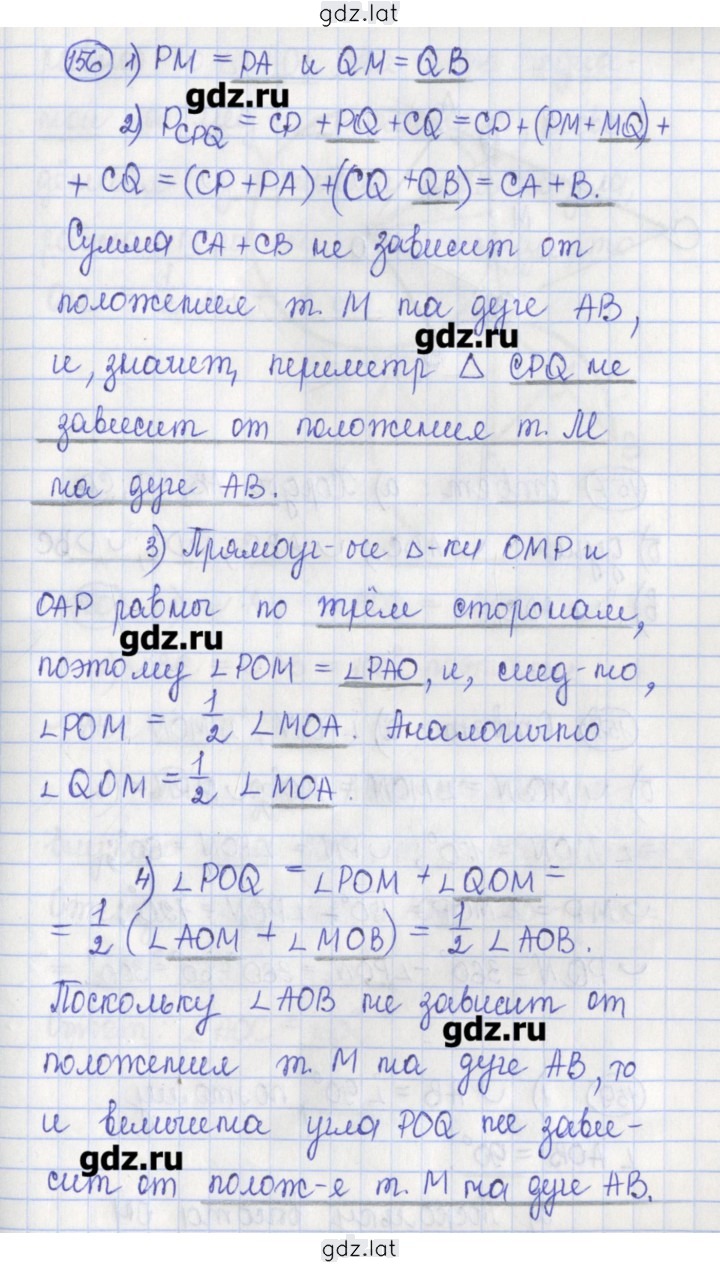 gdz.lat
156 1) PM = PA и QM = QB
gdz.ru
2) P_CPQ = CP + PQ + CQ = CP + (PM + MQ) +
+ CQ = (CP + PA) + (CQ + QB) = CA + B.
Сумма CA + CB не зависит от
положения т. M на дуге AB,
gdz.ru
и, значит, периметр △ CPQ не
зависит от положения т. M
на дуге AB.
3) Прямоуг-ые △-ки OMP и
OAP равны по трём сторонам,
gdz.ru
поэтому ∠POM = ∠PAO, и, след-но,
∠POM = 1/2 ∠MOA. Аналогично
∠QOM = 1/2 ∠MOA.
4) ∠POQ = ∠POM + ∠QOM =
= 1/2 (∠AOM + ∠MOB) = 1/2 ∠AOB.
Поскольку ∠AOB не зависит от
gdz.ru
положения т. M на дуге AB, то
и величина угла POQ не зави-
gdz.ru
сит от полож-я т. M на дуге AB.
gdz.lat